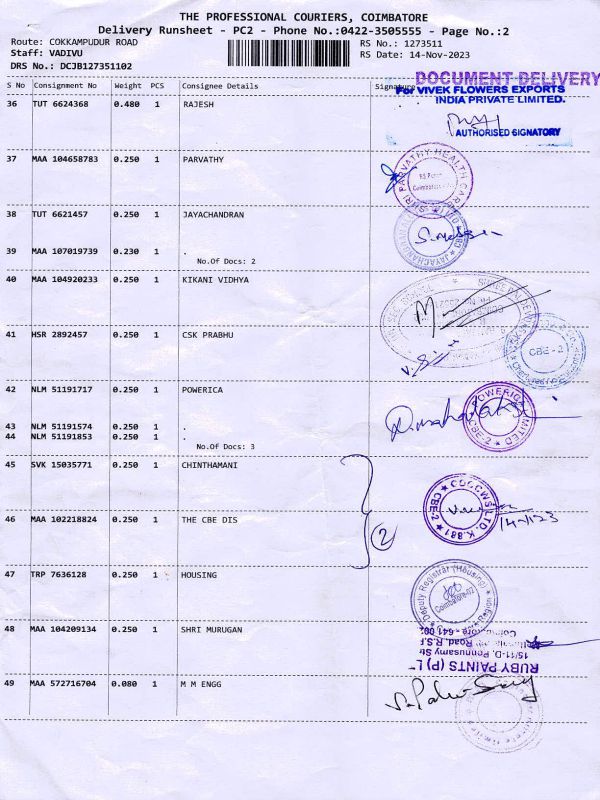 THE PROFESSIONAL COURIERS, COIMBATORE
Delivery Runsheet - PC2 - Phone No.:0422-3505555 - Page No.:2
Route: COKKAMPUDUR ROAD
RS No.: 1273511
Staff: VADIVU
RS Date: 14-Nov-2023
DRS No.: DCJB127351102
DOCUMENT DELIVERY
S No Consignment No Weight PCS Consignee Details Signature
For VIVEK FLOWERS EXPORTS
INDIA PRIVATE LIMITED.
36 TUT 6624368 0.480 1 RAJESH
AUTHORISED SIGNATORY
37 MAA 104658783 0.250 1 PARVATHY
SHRI PARVATHY HEALTH CARE
38 TUT 6621457 0.250 1 JAYACHANDRAN
39 MAA 107019739 0.230 1 .
No.Of Docs: 2
40 MAA 104920233 0.250 1 KIKANI VIDHYA
41 HSR 2892457 0.250 1 CSK PRABHU
CBE - 2
42 NLM 51191717 0.250 1 POWERICA
POWERICA LIMITED
CBE-2
43 NLM 51191574 0.250 1 .
44 NLM 51191853 0.250 1 .
No.Of Docs: 3
45 SVK 15035771 0.250 1 CHINTHAMANI
COCCWS LTD. K.881
CBE-2
46 MAA 102218824 0.250 1 THE CBE DIS
2
14/11/23
47 TRP 7636128 0.250 1 HOUSING
Deputy Registrar (Housing)
Coimbatore Region
Coimbatore-02
48 MAA 104209134 0.250 1 SHRI MURUGAN
RUBY PAINTS (P) L
15/11-D, Ponnusamy Str
Road, R.S.
Coimbatore - 641 002
49 MAA 572716704 0.080 1 M M ENGG